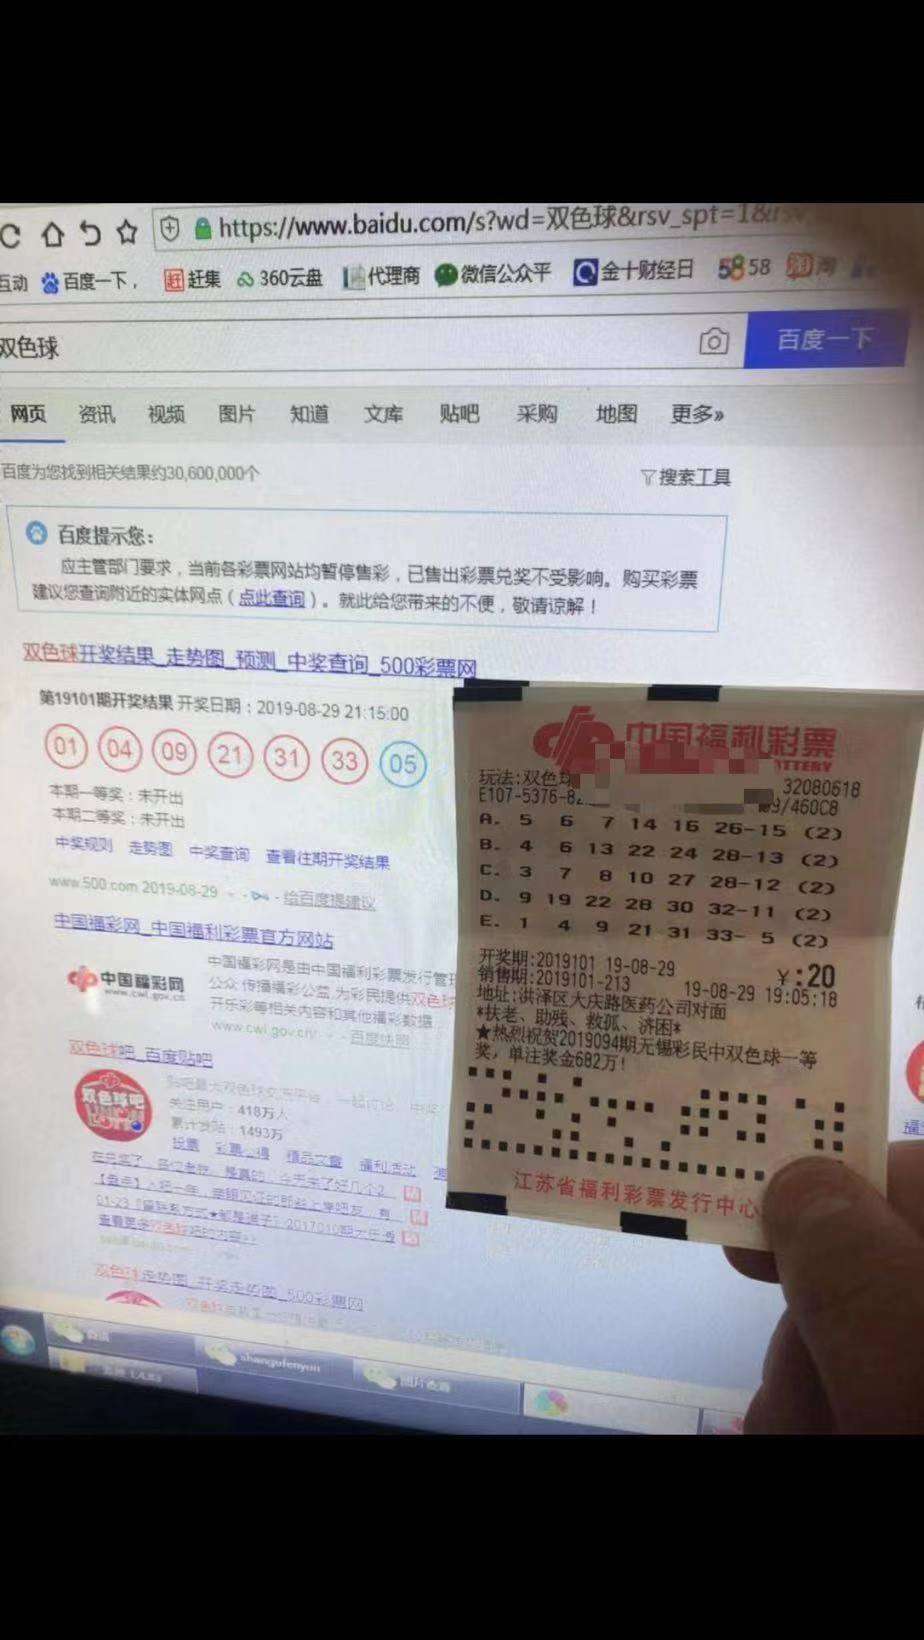 https://www.baidu.com/s?wd=双色球&rsv_spt=1&rsv
互动 百度一下， 赶集 360云盘 代理商 微信公众平 金十财经日 58 淘
双色球 百度一下
网页 资讯 视频 图片 知道 文库 贴吧 采购 地图 更多»
百度为您找到相关结果约30,600,000个 搜索工具
百度提示您：
应主管部门要求，当前各彩票网站均暂停售彩，已售出彩票兑奖不受影响。购买彩票
建议您查询附近的实体网点（点此查询）。就此给您带来的不便，敬请谅解！
双色球开奖结果_走势图_预测_中奖查询_500彩票网
第19101期开奖结果 开奖日期：2019-08-29 21:15:00
01 04 09 21 31 33 05
本期一等奖：未开出
本期二等奖：未开出
中奖规则 走势图 中奖查询 查看往期开奖结果
www.500.com 2019-08-29 - 给百度提建议
中国福彩网_中国福利彩票官方网站
中国福彩网
www.cwl.gov.cn
中国福彩网是由中国福利彩票发行管理
公众 传播福彩公益,为彩民提供双色球
开乐彩等相关内容和其他福彩数据
www.cwl.gov.cn/ - 百度快照
双色球吧_百度贴吧
双色球吧
UNION
LOTTO
关注用户：418万人
累计发贴：1493万
投票 彩票心得 精品文章 福利活动
双色球走势图_开奖走势图_500彩票网
中国福利彩票
玩法:双色球 32080618
E107-5376-82 /460C8
A. 5 6 7 14 16 26-15 (2)
B. 4 6 13 22 24 28-13 (2)
C. 3 7 8 10 27 28-12 (2)
D. 9 19 22 28 30 32-11 (2)
E. 1 4 9 21 31 33- 5 (2)
开奖期:2019101 19-08-29 ￥:20
销售期:2019101-213 19-08-29 19:05:18
地址:洪泽区大庆路医药公司对面
*扶老、助残、救孤、济困*
★热烈祝贺2019094期无锡彩民中双色球一等
奖，单注奖金682万!
江苏省福利彩票发行中心
shangufenyun